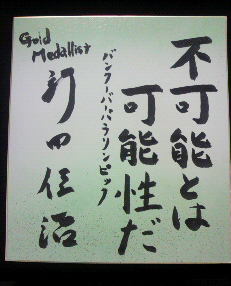 不可能とは
可能性だ
バンクーバーパラリンピック
Gold
Medallist
新田佳浩